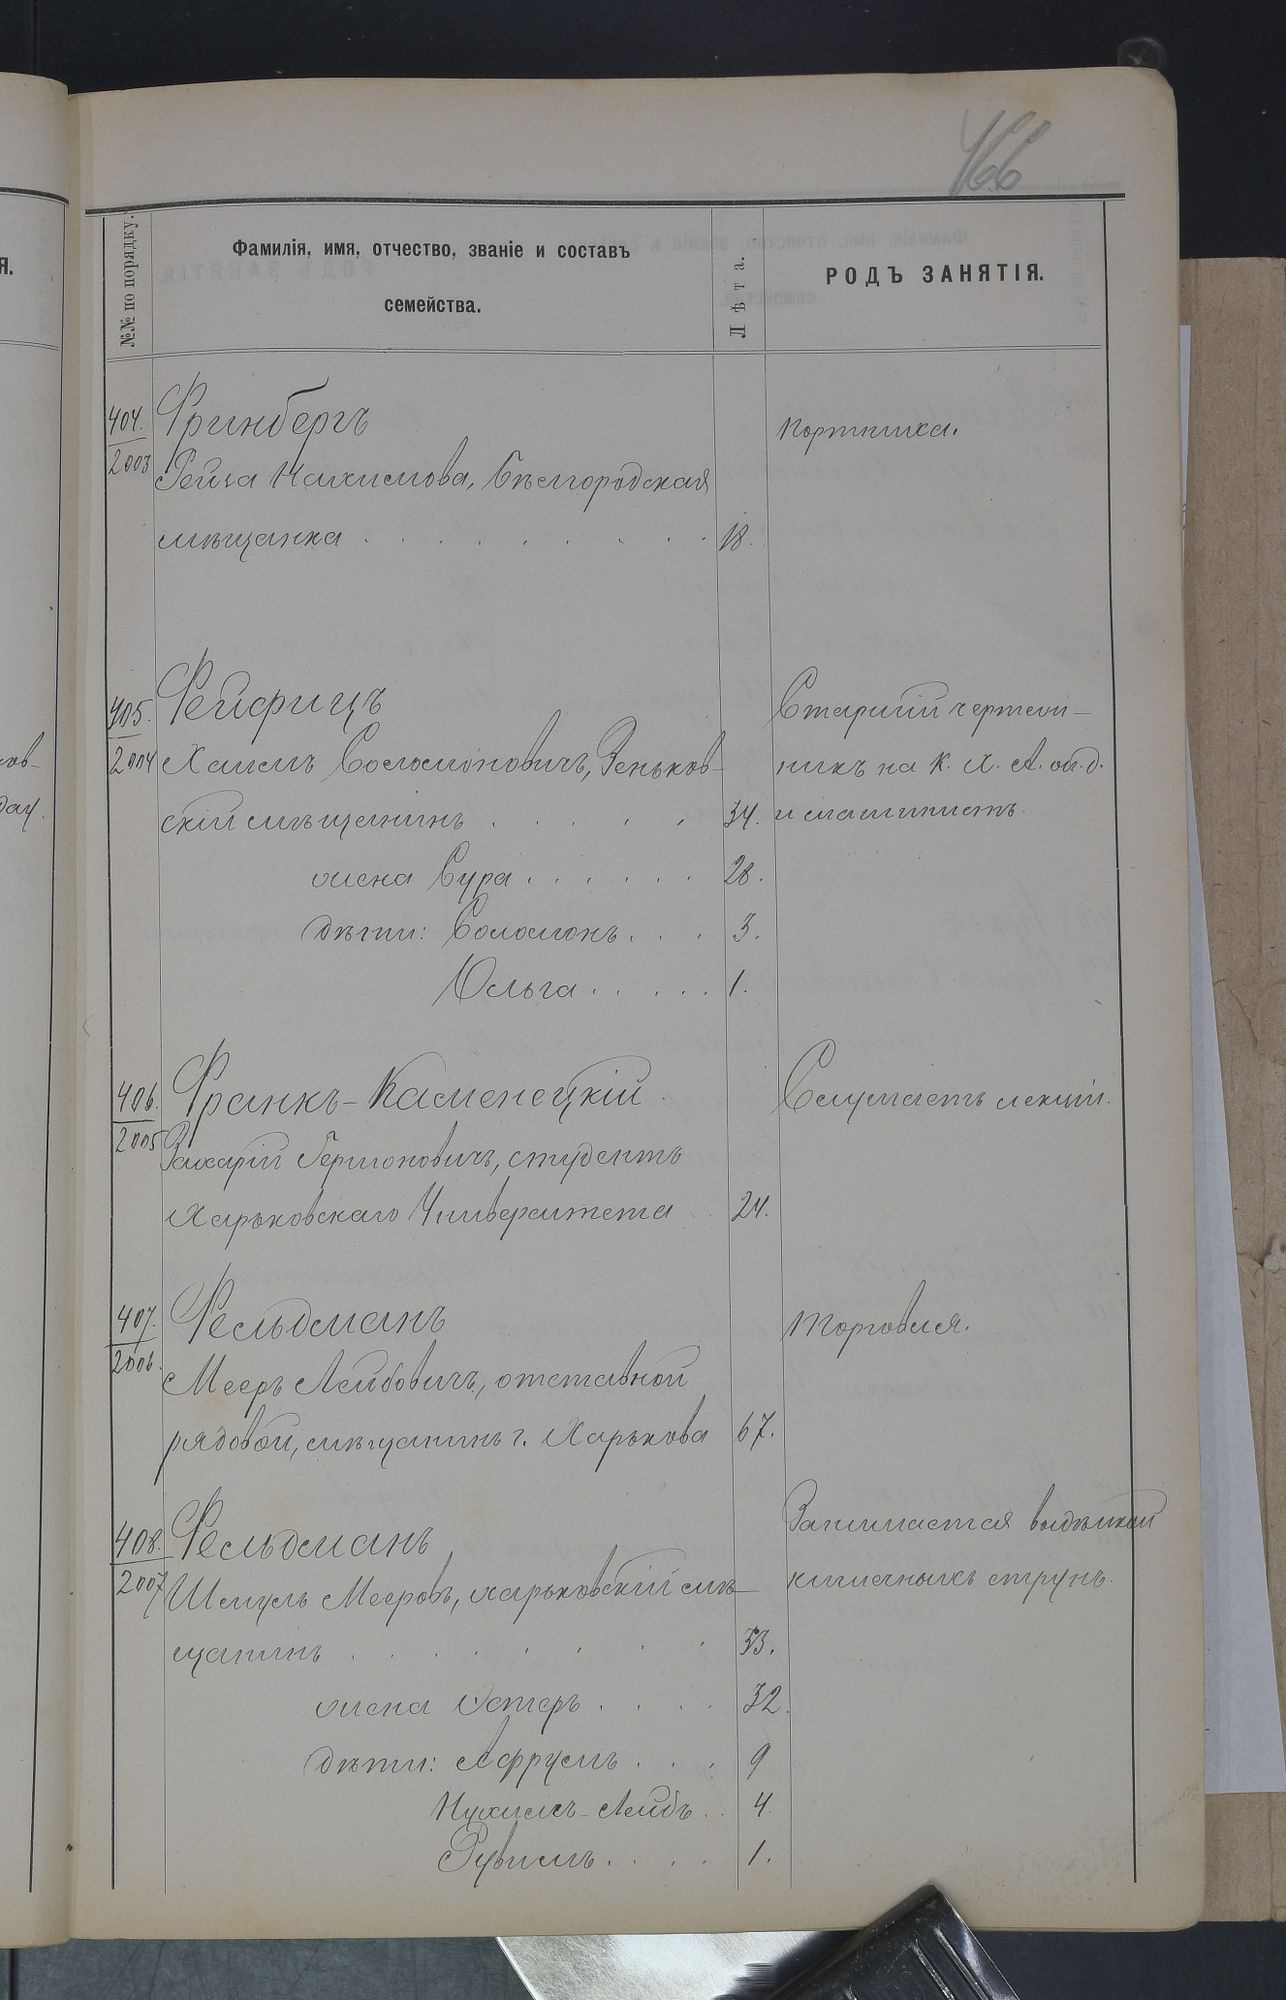 466
№№ по порядку.
Фамилія, имя, отчество, званіе и составъ
семейства.
Лѣта.
РОДЪ ЗАНЯТІЯ.
404.
2003
Фринбергъ
Рейза Нахимова, Бѣлгородская
мѣщанка . . . . . . . . . . 18.
портниха.
405.
2004
Фейфицъ
Хаимъ Соломоновичъ, Зеньков-
скій мѣщанинъ . . . . . 34.
жена Сура . . . . . . 28.
дѣти: Соломонъ . . . 3.
Ольга . . . . . 1.
Старшій чертеж-
никъ на К. Х. А. ж. д.
и машинистъ.
406.
2005
Франкъ-Каменецкій.
Захарій Германовичъ, студентъ
Харьковскаго Университета . . 24.
Слушаетъ лекціи.
407.
2006.
Фельдманъ
Мееръ Лейбовичъ, отставной
рядовой, мѣщанинъ г. Харькова 67.
Торговля.
408.
2007
Фельдманъ
Шмуль Мееровъ, харьковскій мѣ-
щанинъ . . . . . . . 33.
жена Эстеръ . . . . 32.
дѣти: Афруимъ . . . 9
Нухимъ-Лейбъ . . 4.
Рувимъ . . . . 1.
Занимается выдѣлкой
кишечныхъ струнъ.